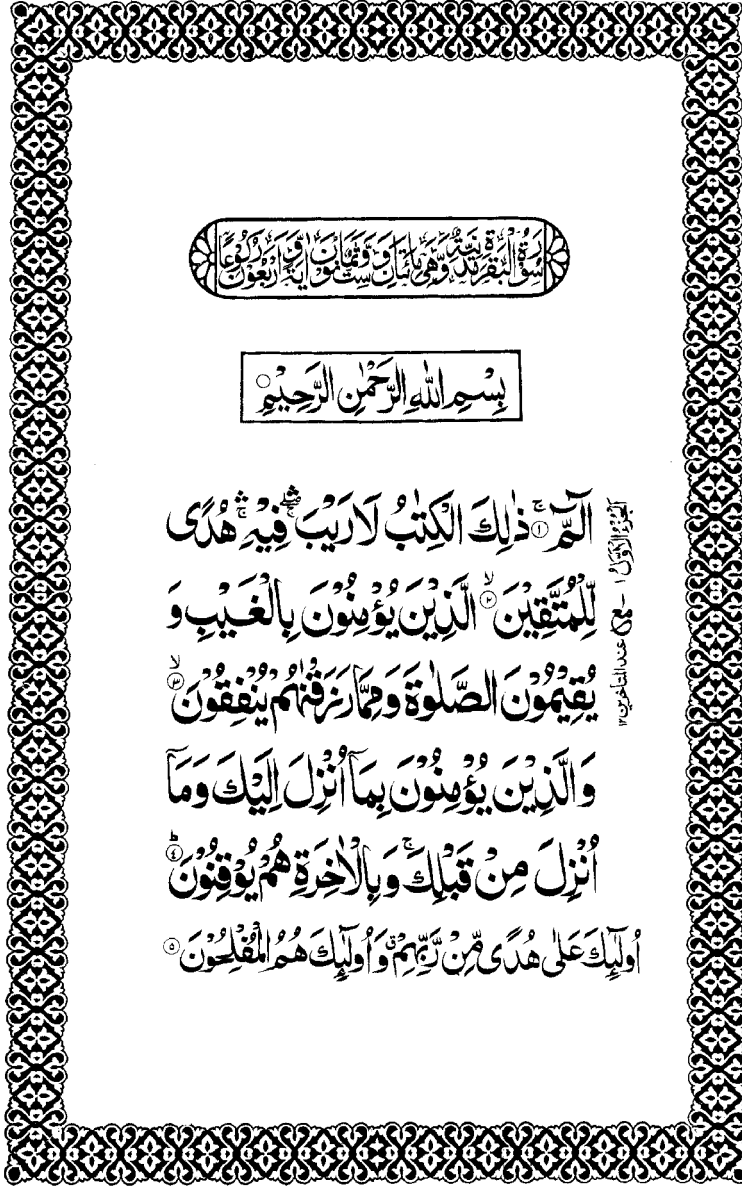 سُوْرَةُ الْبَقَرَةِ مَدَنِيَّةٌ وَّهِيَ مِائَتَانِ وَسِتٌّ وَّثَمَانُوْنَ اٰيَةً وَّاَرْبَعُوْنَ رُكُوْعًا
بِسْمِ اللهِ الرَّحْمٰنِ الرَّحِيْمِ
الٓمّٓ ۚ ۝١ ذٰلِكَ الْكِتٰبُ لَا رَيْبَ ۛۖ فِيْهِ ۛۚ هُدًى
لِّلْمُتَّقِيْنَ ۙ ۝٢ الَّذِيْنَ يُؤْمِنُوْنَ بِالْغَيْبِ وَ
يُقِيْمُوْنَ الصَّلٰوةَ وَمِمَّا رَزَقْنٰهُمْ يُنْفِقُوْنَ ۙ ۝٣
وَالَّذِيْنَ يُؤْمِنُوْنَ بِمَآ اُنْزِلَ اِلَيْكَ وَمَآ
اُنْزِلَ مِنْ قَبْلِكَ ۚ وَبِالْاٰخِرَةِ هُمْ يُوْقِنُوْنَ ؕ ۝٤
اُولٰٓئِكَ عَلٰى هُدًى مِّنْ رَّبِّهِمْ ۗ وَاُولٰٓئِكَ هُمُ الْمُفْلِحُوْنَ ۝٥
الجُزْءُ الْاَوَّلُ ١ - مع عند المتأخرين ١٢